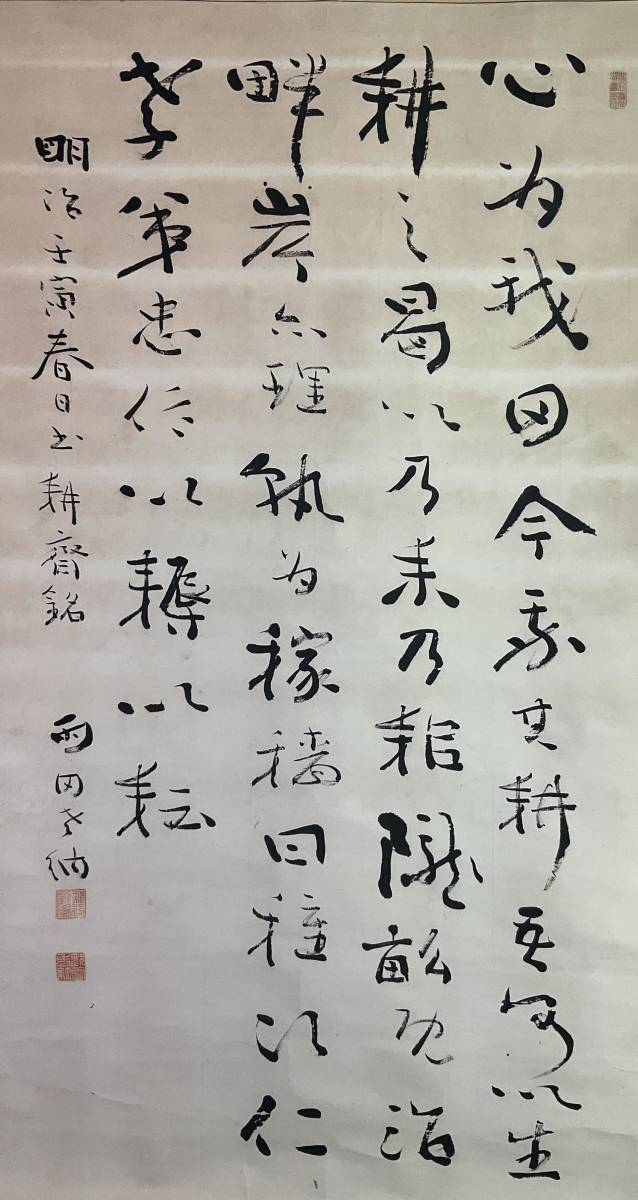 心為我田今我其耕吾何以生
耕之曷以乃耒乃耜隴畝既治
畔岸亦理孰為稼穡曰種以仁
孝弟忠信以耨以耘
明治壬寅春日書耕齋銘
雨田老衲